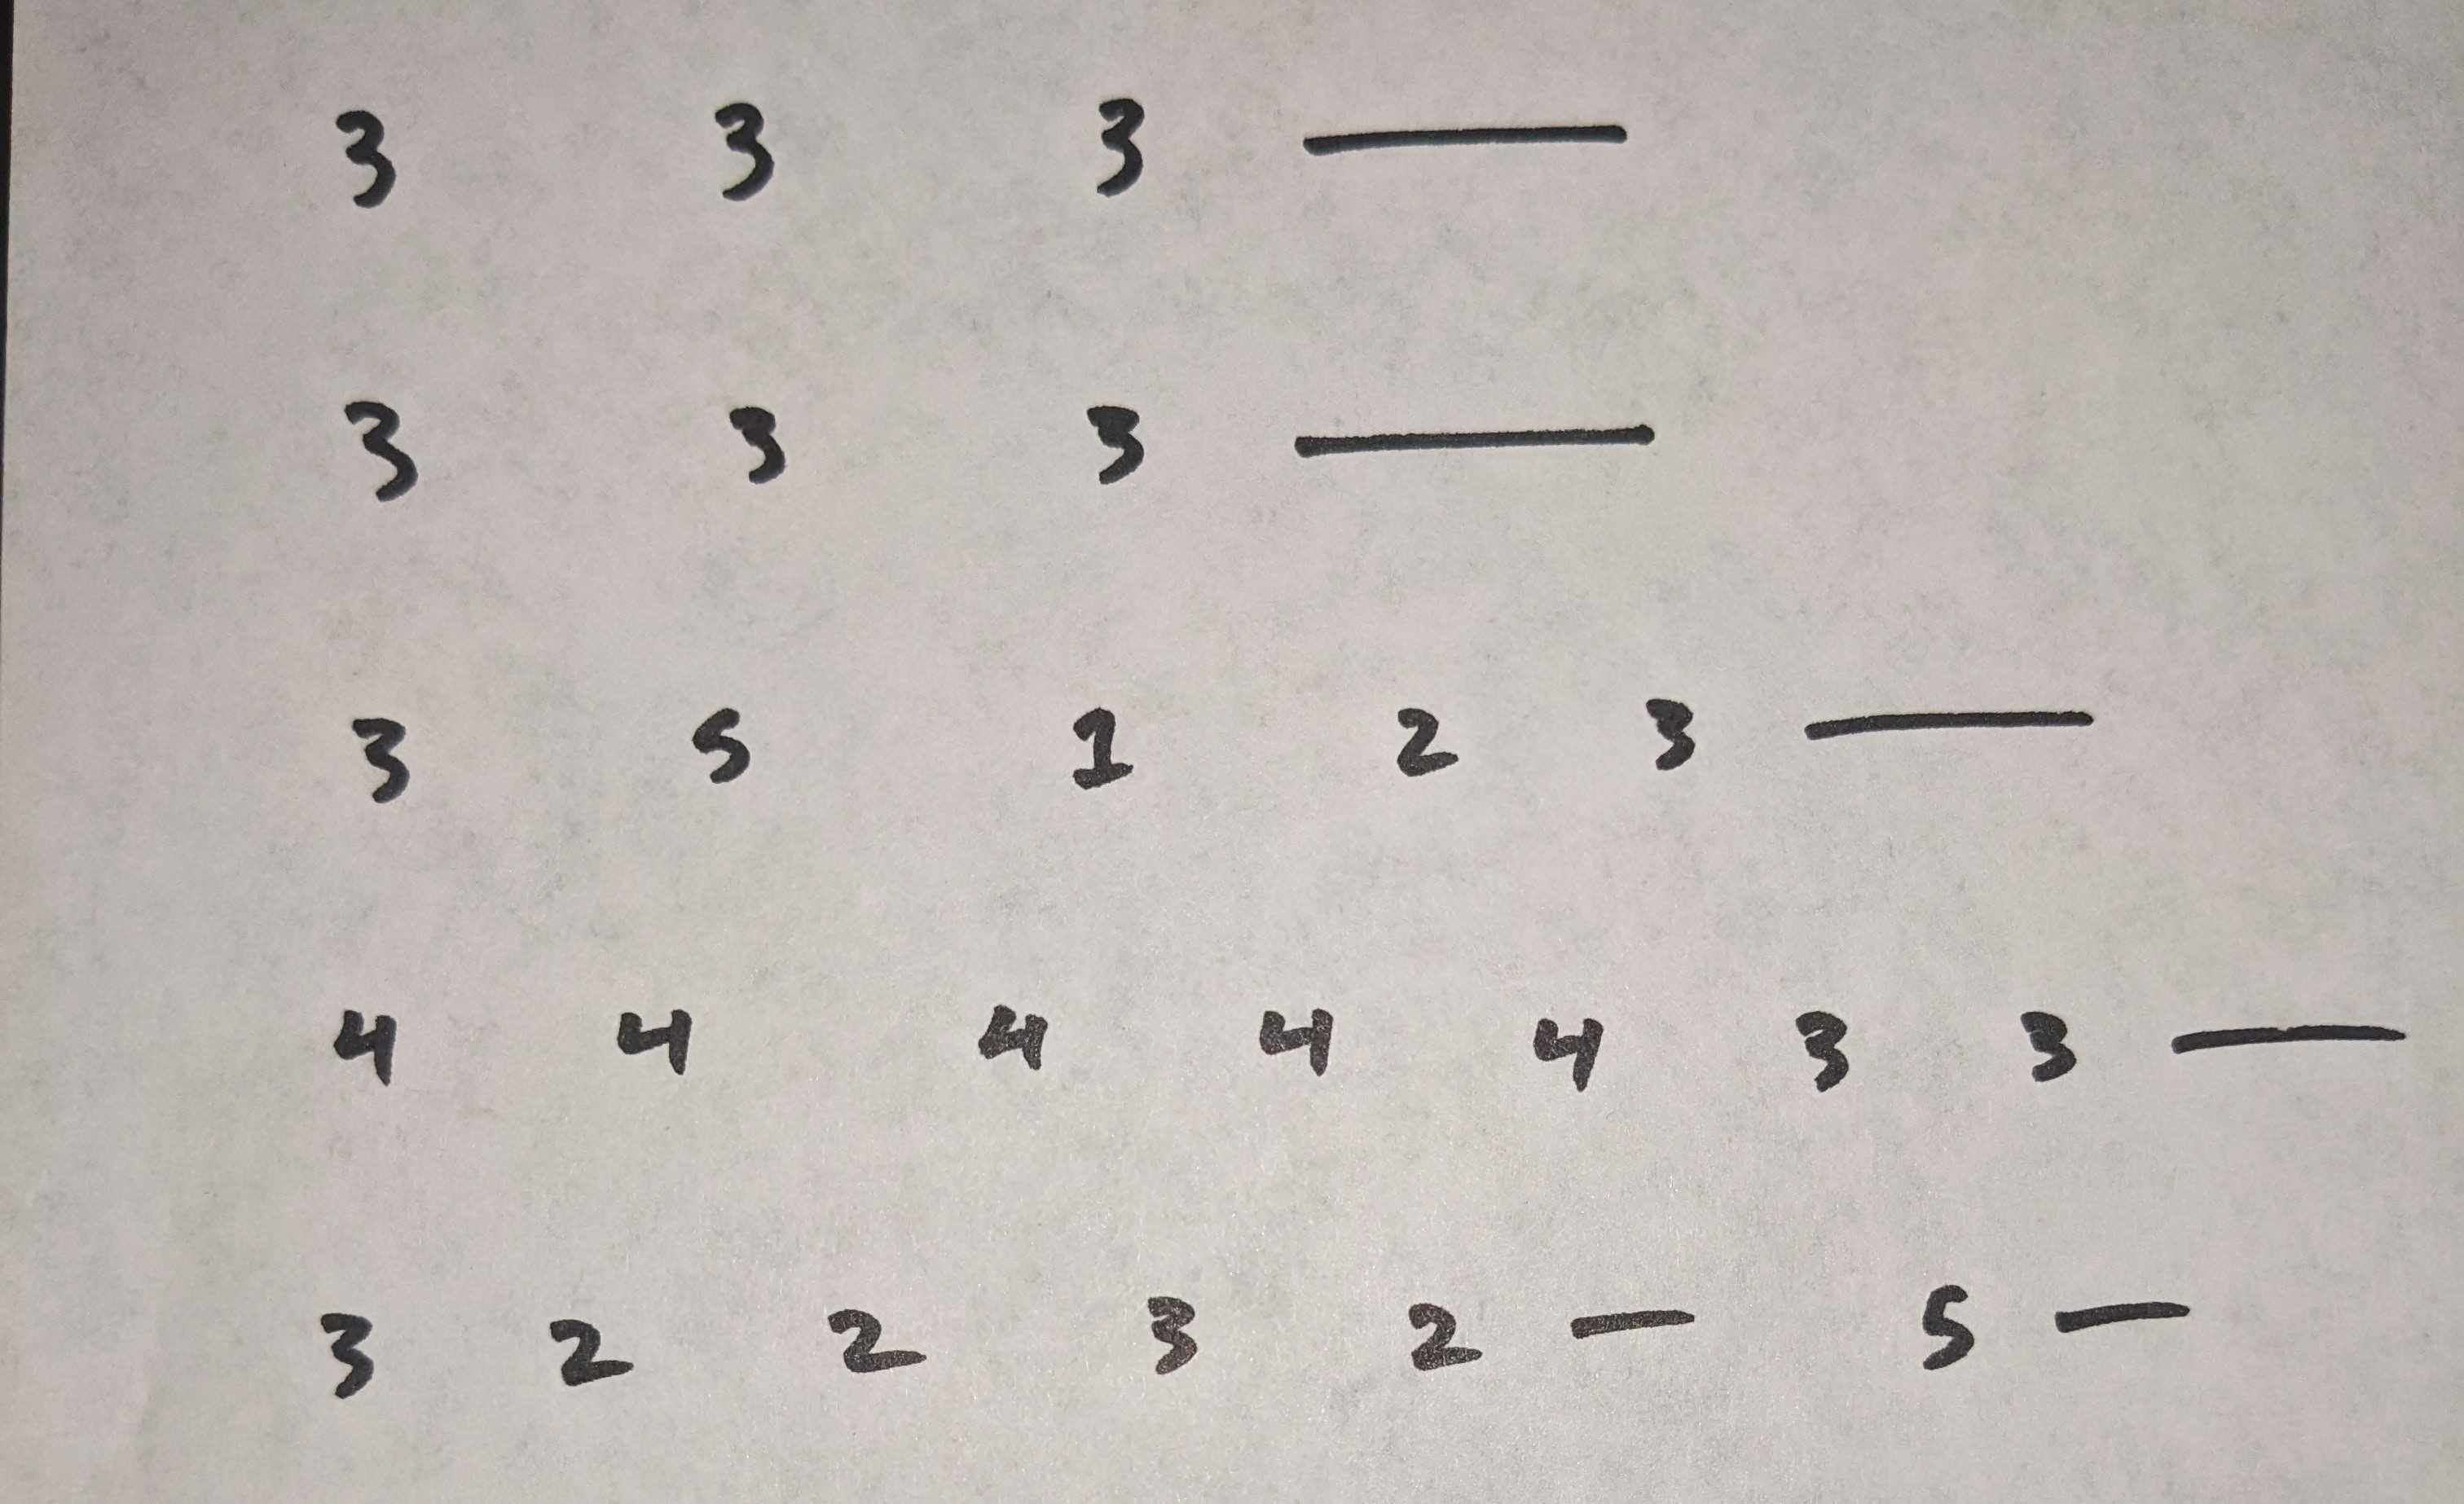 3 3 3 —
3 3 3 —
3 5 1 2 3 —
4 4 4 4 4 3 3 —
3 2 2 3 2 — 5 —